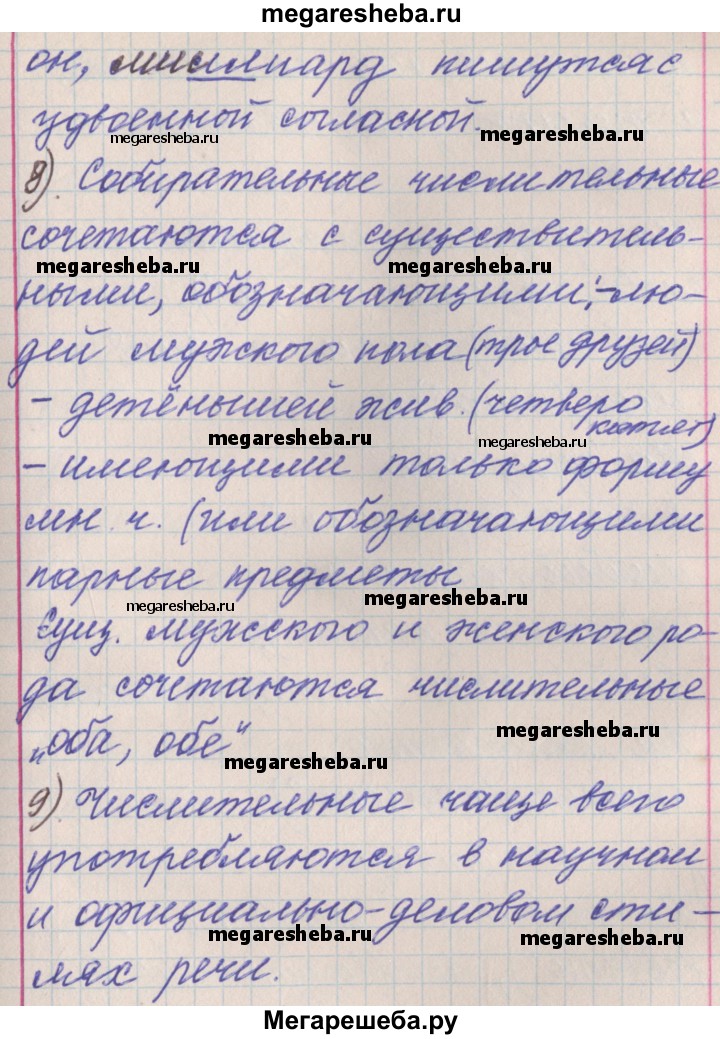 megaresheba.ru
он, миллиард пишутся с
удвоенной согласной.
megaresheba.ru megaresheba.ru
8). Собирательные числительные
сочетаются с существитель-
megaresheba.ru megaresheba.ru
ными, обозначающими: - лю-
дей мужского пола (трое друзей)
- детёнышей жив. (четверо
котят)
megaresheba.ru megaresheba.ru
- имеющими только форму
мн. ч. (или обозначающими
парные предметы
megaresheba.ru megaresheba.ru
Сущ. мужского и женского ро-
да сочетаются числительные
„оба, обе“
megaresheba.ru megaresheba.ru
9). Числительные чаще всего
употребляются в научном
и официально-деловом сти-
megaresheba.ru megaresheba.ru
лях речи.
Мегарешеба.ру